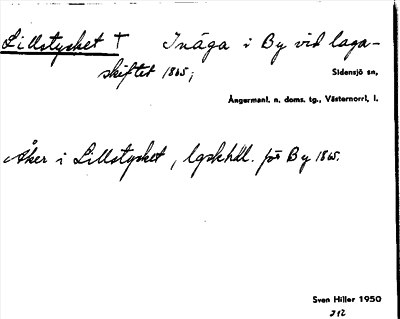 Lillstycket † Inäga i By vid laga-
skiftet 1865;
Sidensjö sn,
Ångermanl. n. doms. tg., Västernorrl. l.
Åker i Lillstycket, lgskhdl. för By 1865.
Sven Hiller 1950
212